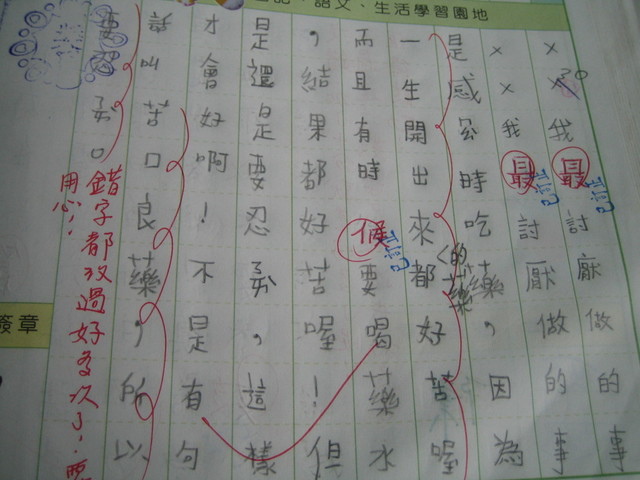 記、語文、生活學習園地
××我最討厭做的事
已訂正
××我最討厭做的事
已訂正
是感時吃藥，因為
一生開出來都好苦喔
的藥
而且有時候要喝藥水
已訂正
，結果都好苦喔！但
是還是要忍，這樣
才會好啊！不是有句
話叫苦口良藥，所以
要
錯字都改過好多次了！要
用心！
簽章